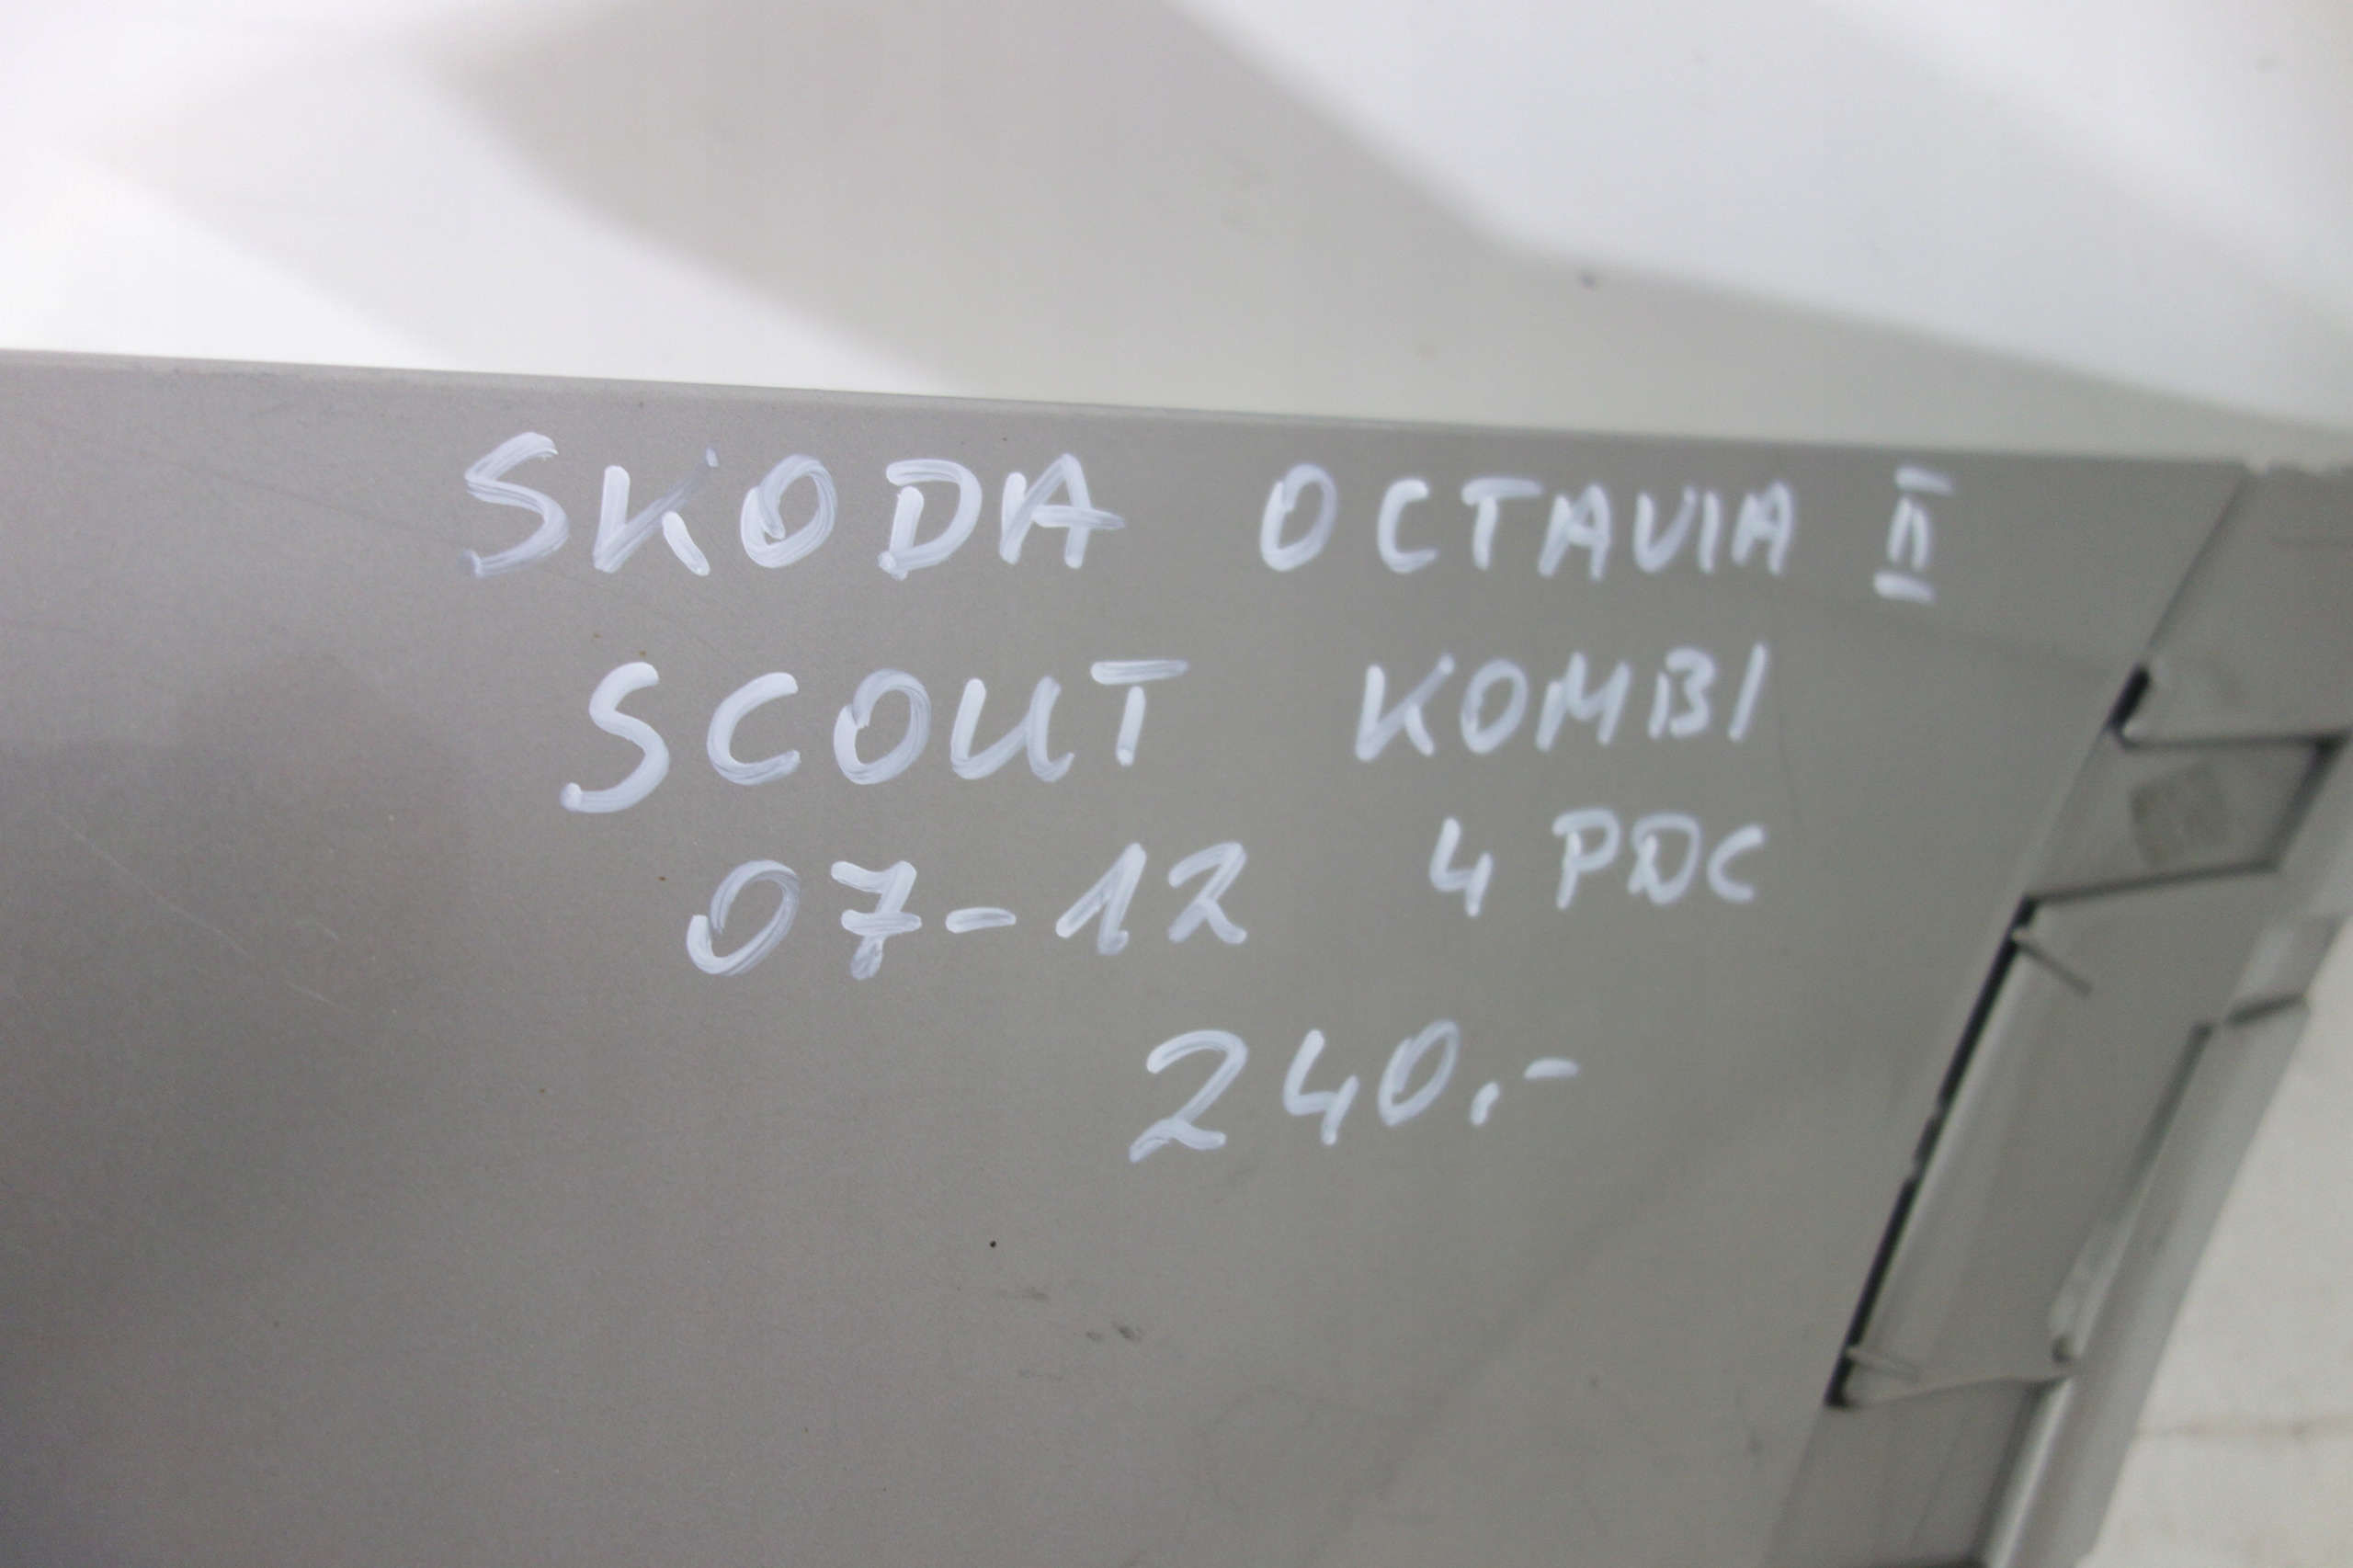 SKODA OCTAVIA II
SCOUT KOMBI
07-12 4 PDC
240.-